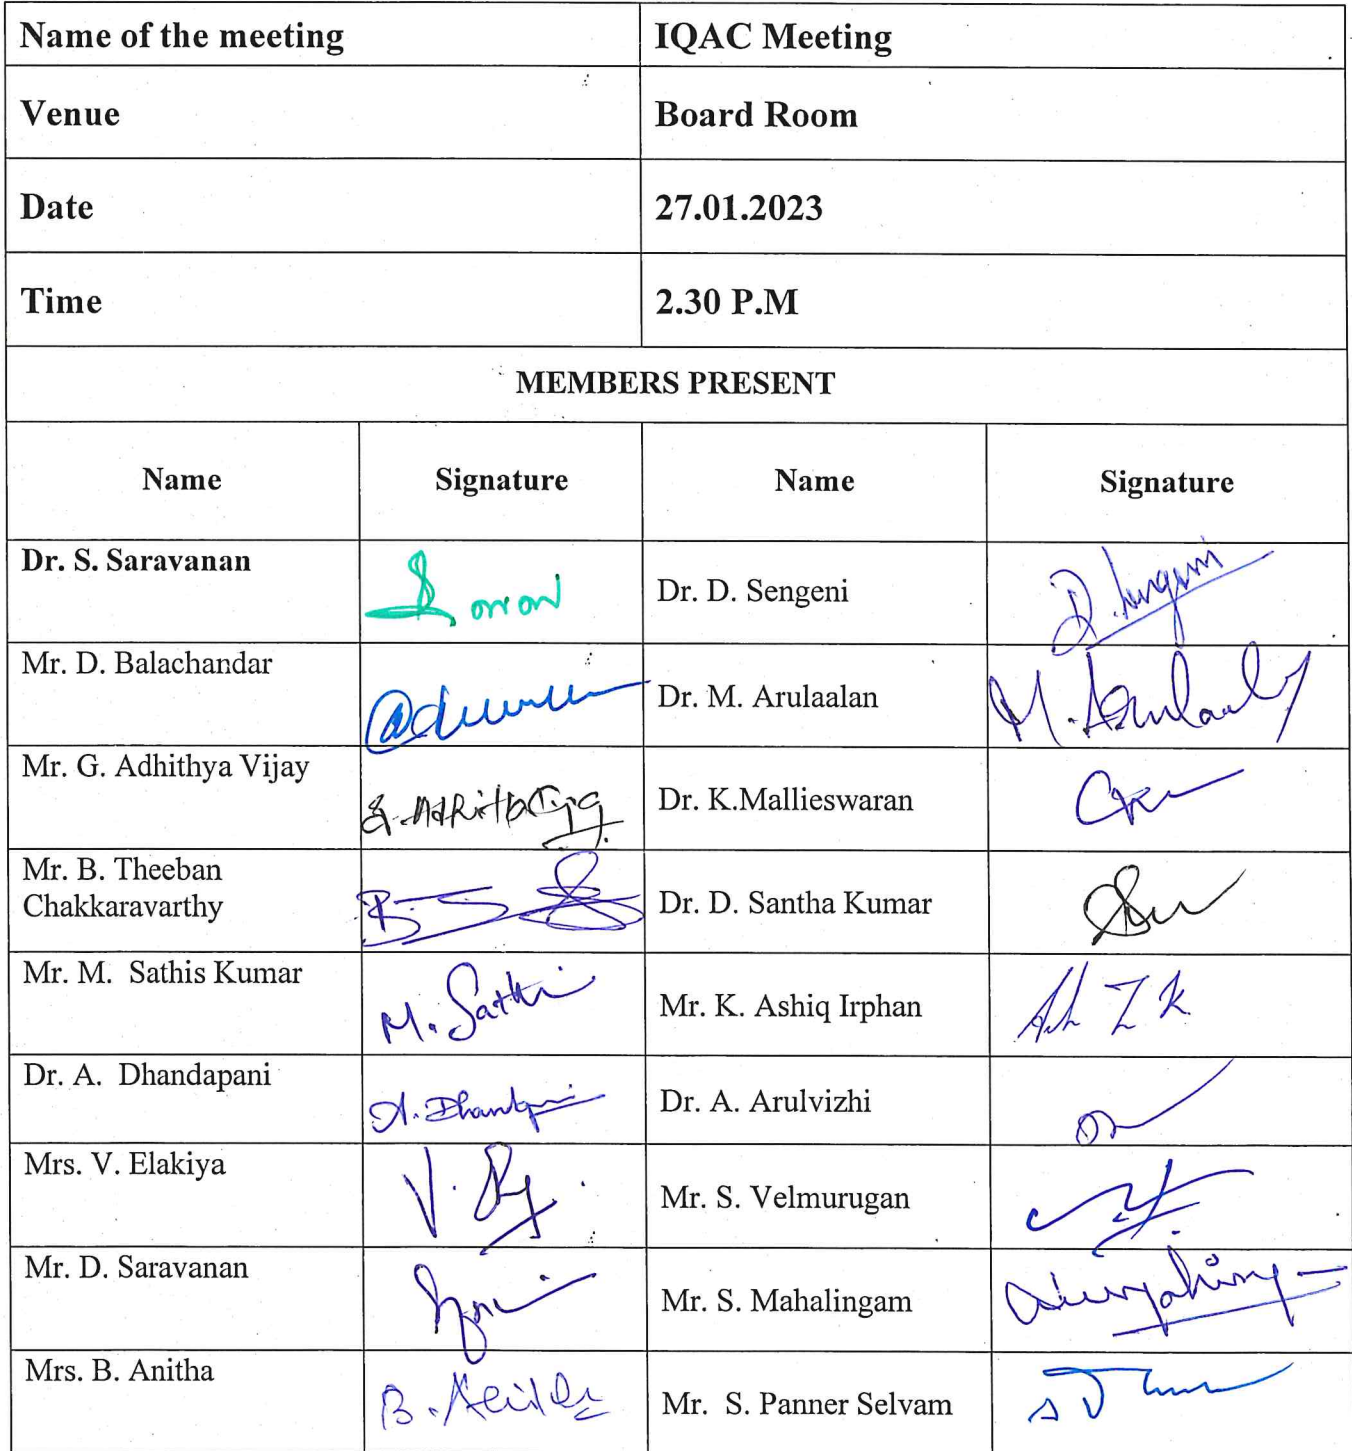 Name of the meeting IQAC Meeting
Venue Board Room
Date 27.01.2023
Time 2.30 P.M
MEMBERS PRESENT
Name Signature Name Signature
Dr. S. Saravanan Dr. D. Sengeni
Mr. D. Balachandar Dr. M. Arulaalan M.
Mr. G. Adhithya Vijay Dr. K.Mallieswaran
Mr. B. Theeban
Chakkaravarthy Dr. D. Santha Kumar
Mr. M. Sathis Kumar M. Mr. K. Ashiq Irphan
Dr. A. Dhandapani A. Dr. A. Arulvizhi
Mrs. V. Elakiya V. Mr. S. Velmurugan
Mr. D. Saravanan Mr. S. Mahalingam
Mrs. B. Anitha B. Mr. S. Panner Selvam